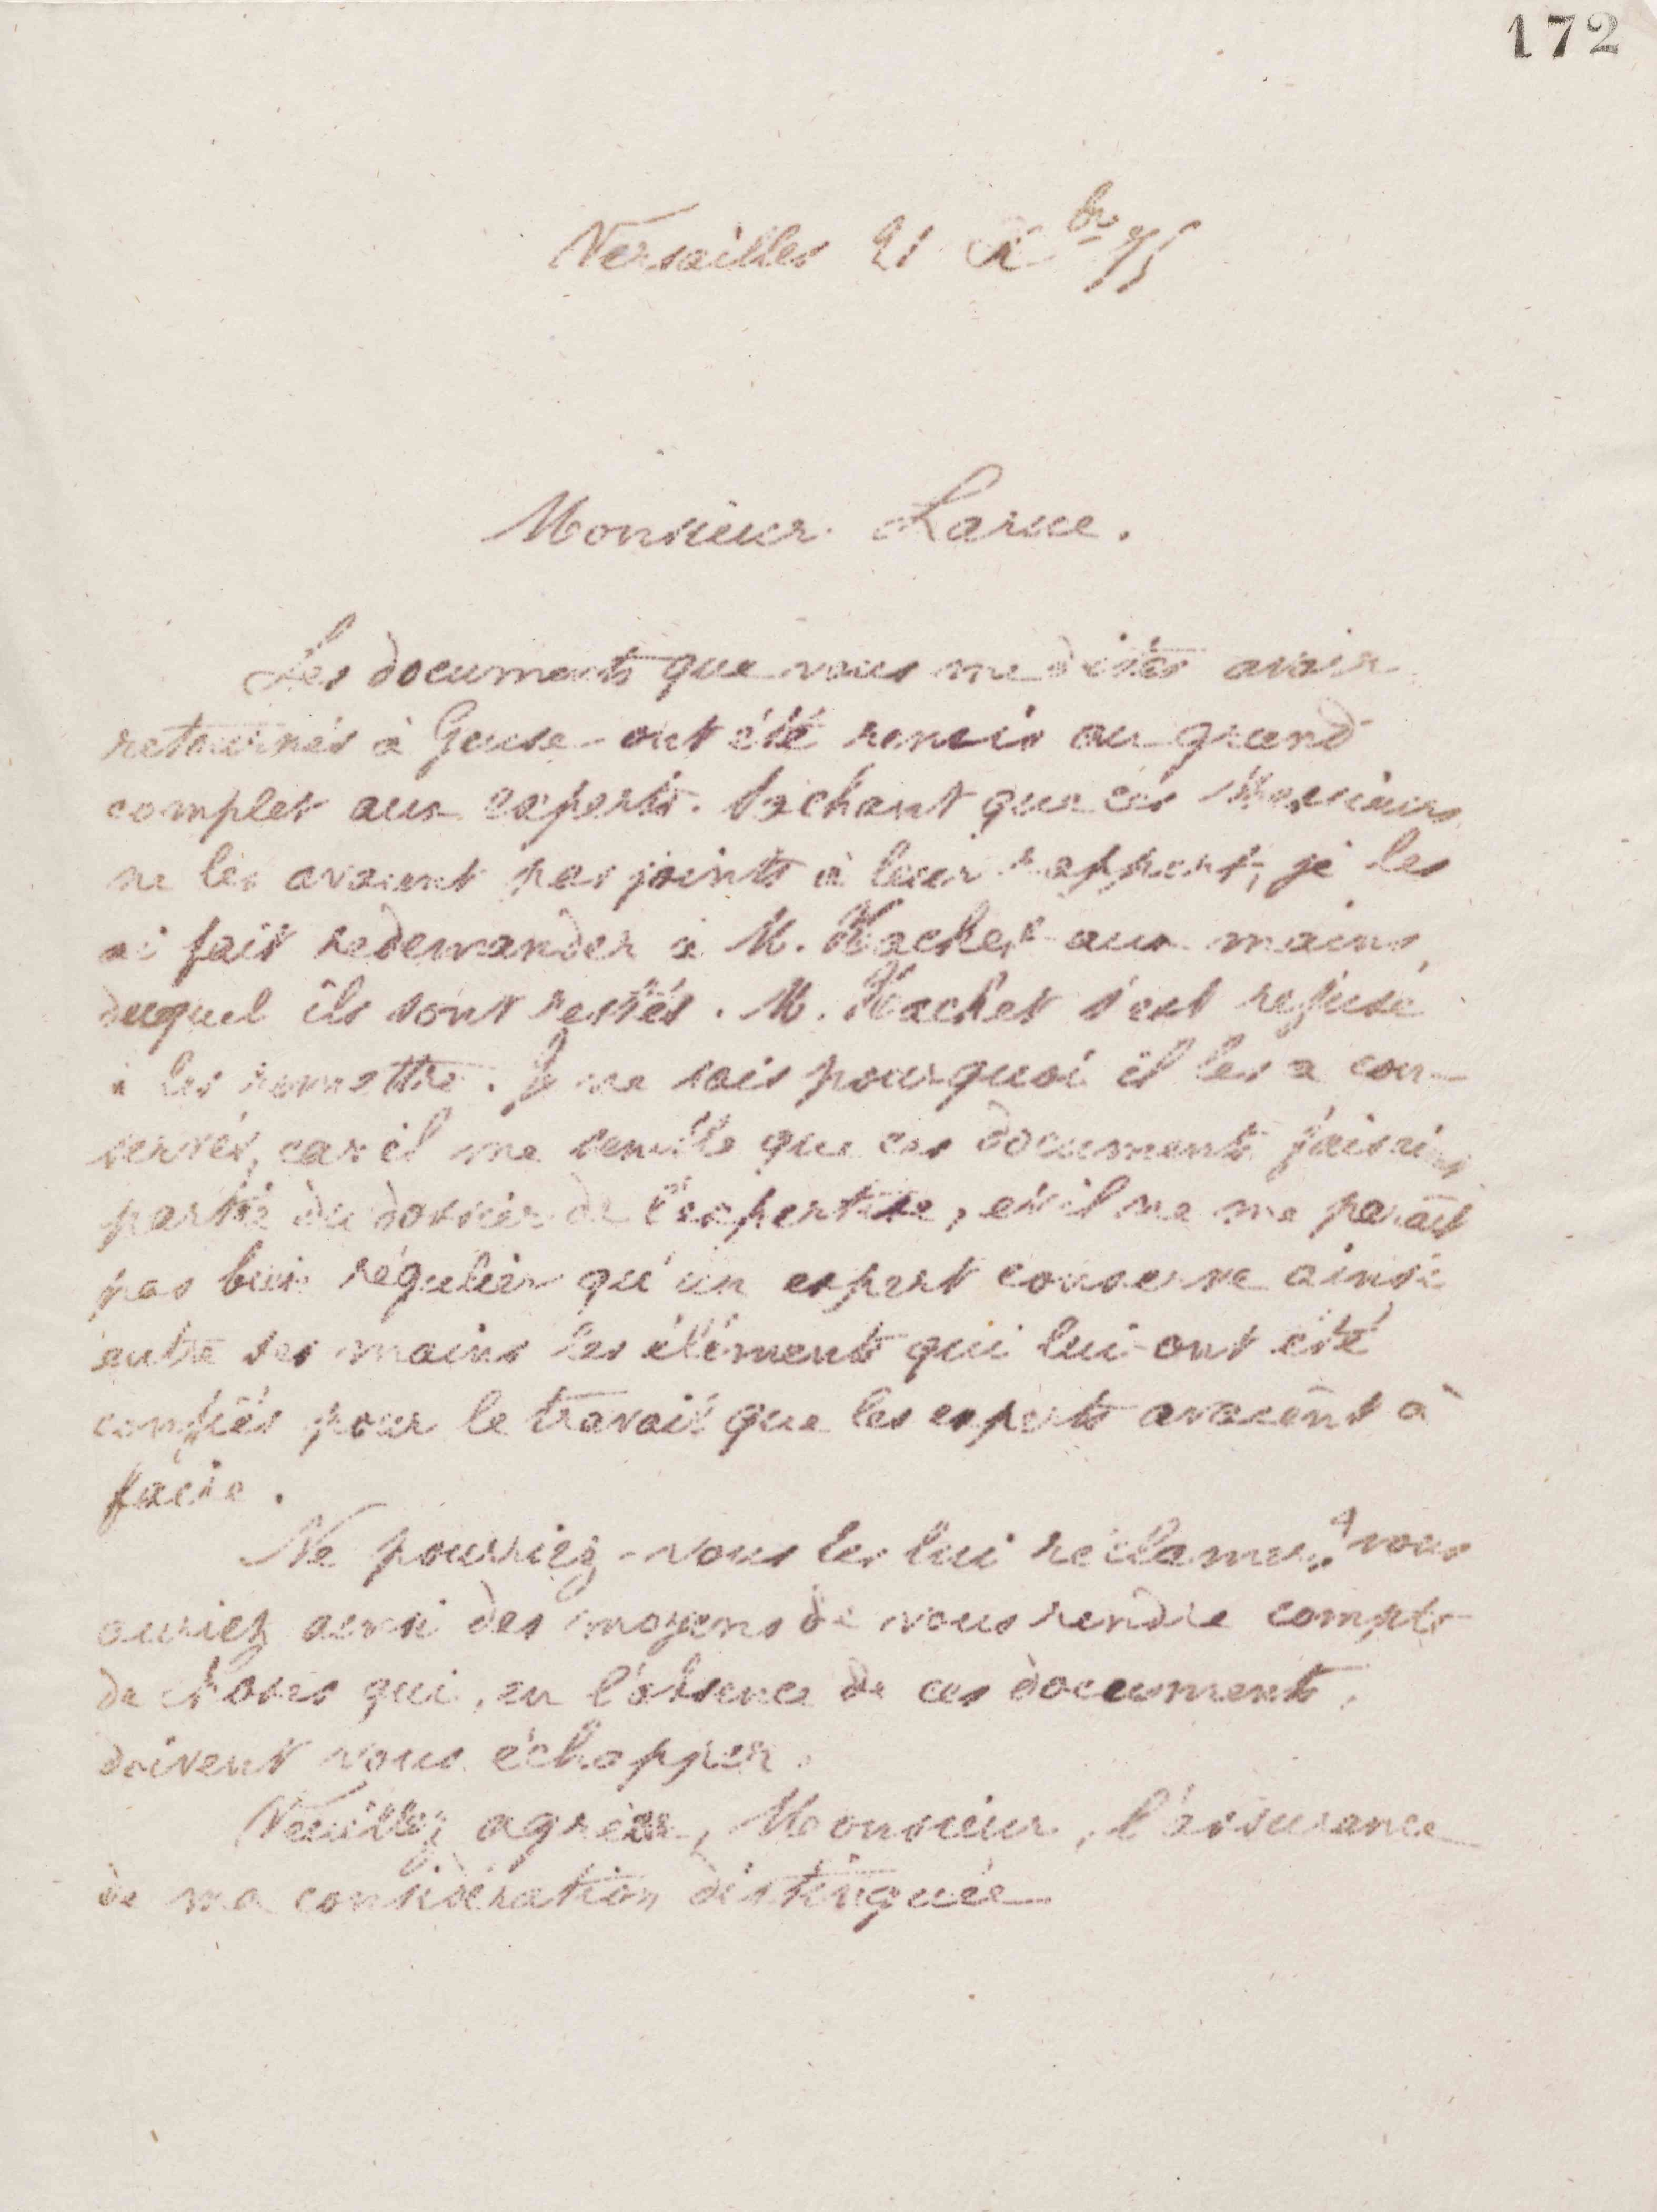 172
Versailles 21 Xbre 75
Monsieur Larue.
Les documents que vous me dites avoir
retournés à Guise ont été remis au grand
complet aux experts. Sachant que ces Messieurs
ne les avaient pas joints à leur rapport, je les
ai fait redemander à M. Hachet aux mains
duquel ils sont restés. M. Hachet s'est refusé
à les remettre. Je ne sais pourquoi il les a con-
servés, car il me semble que ces documents faisaient
partie du dossier de l'expertise, et il ne me paraît
pas bien régulier qu'un expert conserve ainsi
entre ses mains les éléments qui lui ont été
confiés pour le travail que les experts avaient à
faire.
Ne pourriez-vous les lui réclamer? vous
auriez ainsi des moyens de vous rendre compte
de choses qui, en l'absence de ces documents,
doivent vous échapper.
Veuillez agréer, Monsieur, l'assurance
de ma considération distinguée